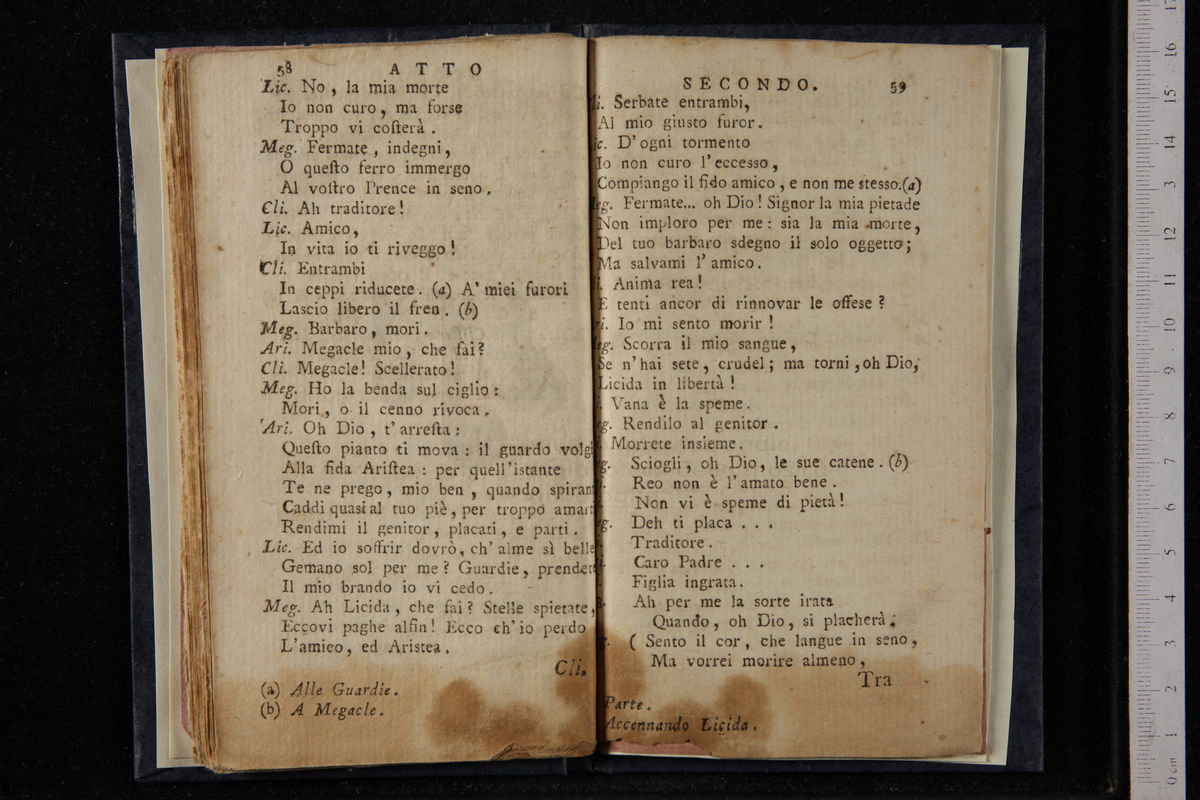 58 ATTO
Lic. No, la mia morte
Io non curo, ma forse
Troppo vi coſterà.
Meg. Fermate, indegni,
O queſto ferro immergo
Al voſtro Prence in seno.
Cli. Ah traditore!
Lic. Amico,
In vita io ti riveggo!
Cli. Entrambi
In ceppi riducete. (a) A' miei furori
Lascio libero il fren. (b)
Meg. Barbaro, mori.
Ari. Megacle mio, che fai?
Cli. Megacle! Scellerato!
Meg. Ho la benda sul ciglio:
Mori, o il cenno rivoca.
Ari. Oh Dio, t'arreſta:
Queſto pianto ti mova: il guardo volgi
Alla fida Ariſtea: per quell'istante
Te ne prego, mio ben, quando spirant
Caddi quasi al tuo piè, per troppo amart
Rendimi il genitor, placati, e parti.
Lic. Ed io soffrir dovrò, ch'alme sì belle
Gemano sol per me? Guardie, prendet
Il mio brando io vi cedo.
Meg. Ah Licida, che fai? Stelle spietate,
Eccovi paghe alfin! Ecco ch'io perdo
L'amico, ed Aristea.
Cli.
(a) Alle Guardie.
(b) A Megacle.
SECONDO. 59
li. Serbate entrambi,
Al mio giusto furor.
ic. D'ogni tormento
Io non curo l'eccesso,
Compiango il fido amico, e non me stesso.(a)
eg. Fermate... oh Dio! Signor la mia pietade
Non imploro per me: sia la mia morte,
Del tuo barbaro sdegno il solo oggetto;
Ma salvami l'amico.
i. Anima rea!
E tenti ancor di rinnovar le offese?
ri. Io mi sento morir!
eg. Scorra il mio sangue,
Se n'hai sete, crudel; ma torni, oh Dio,
Licida in libertà!
i. Vana è la speme.
eg. Rendilo al genitor.
Morrete insieme.
g. Sciogli, oh Dio, le sue catene. (b)
Reo non è l'amato bene.
Non vi è speme di pietà!
eg. Deh ti placa...
Traditore.
Caro Padre...
Figlia ingrata.
Ah per me la sorte irata
Quando, oh Dio, si placherà.
g. (Sento il cor, che langue in seno,
Ma vorrei morire almeno,
Tra
Parte.
Accennando Licida.